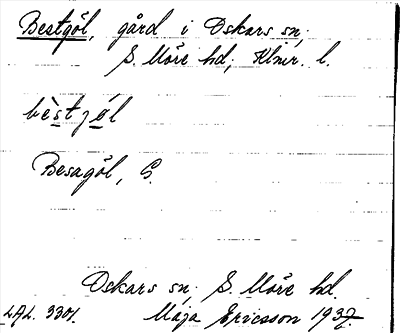 Bestgöl, gård i Oskars sn,
S. Möre hd, Klmr. l.
bèstjó̲l
Besagöl, G.
Oskars sn, S. Möre hd.
LAL. 3301. Maja Ericsson 1937.